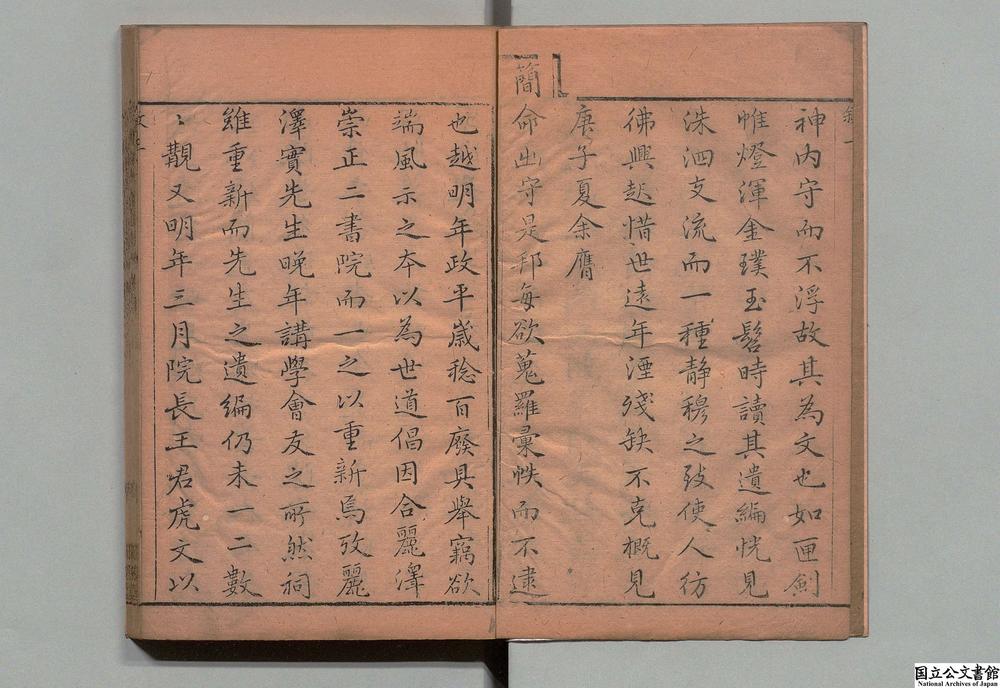 神内守而不浮故其為文也如匣劍
帷燈渾金璞玉髫時讀其遺編恍見
洙泗支流而一種靜穆之致使人彷
彿興起惜世遠年湮殘缺不克概見
庚子夏余膺
簡命出守是邦每欲蒐羅彙帙而不逮
也越明年政平歲稔百廢具舉竊欲
端風示之本以為世道倡因合麗澤
崇正二書院而一之以重新焉攷麗
澤實先生晚年講學會友之所然祠
雖重新而先生之遺編仍未一二數
〻覯又明年三月院長王君虎文以
国立公文書館
National Archives of Japan